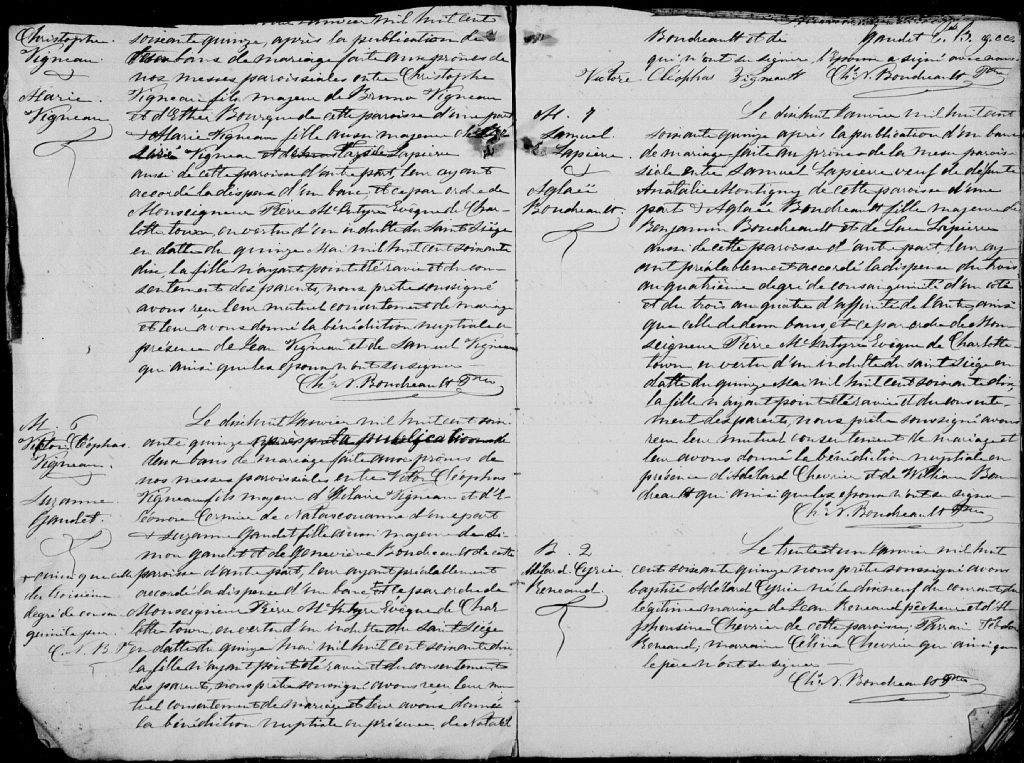 Christophe
Vigneau
&
Marie
Vigneau
janvier mil huit cent
soixante quinze, après la publication de
bans de mariage faite aux prônes de
nos messes paroissiales entre Christophe
Vigneau fils majeur de Bruno Vigneau
et d'Esther Bourque de cette paroisse d'une part
& Marie Vigneau fille aussi majeure de
Vigneau et de Lapierre
aussi de cette paroisse d'autre part, leur ayant
accordé la dispense d'un banc, et ce par ordre de
Monseigneur Pierre McIntyre Evêque de Char-
lotte town, en vertu d'un indulte du Saint Siège
en datte du quinze Mai mil huit cent soixante
dix, la fille n'ayant point été ravie et du con-
sentement des parents, nous prêtre soussigné
avons reçu leur mutuel consentement de mariage
et leur avons donné la bénédiction nuptiale en
présence de Jean Vigneau et de Samuel Vigneau
qui ainsi que les époux n'ont su signer
Chs N. Boudreault Ptre
M. 6
Victor Cléophas
Vigneau
&
Suzanne
Gaudet.
Le dixhuit Janvier mil huit cent soix-
ante quinze après la publication de
deux bans de mariage faite aux prônes de
nos messes paroissiales entre Victor Cléophas
Vigneau fils majeur d'Hilaire Vigneau et d'E-
léonore Cormier de Natascouanne d'une part
& Suzanne Gaudet fille aussi majeure de Si-
mon Gaudet et de Geneviève Boudreault de cette
paroisse d'autre part, leur ayant préalablement
accordé la dispense d'un banc + et ce par ordre de
Monseigneur Pierre McIntyre Evêque de Char-
lotte town, en vertu d'un indulte du Saint Siège
en datte du quinze Mai mil huit cent soixante dix
la fille n'ayant point été ravie et du consentement
des parents, nous prêtre soussigné avons reçu leur mu-
tuel consentement de mariage et leur avons donné
la bénédiction nuptiale en présence de
+ ainsi que celle
du troisième
degré de consan
guinité pur
C. N. B. P
Boudreault et de Gaudet
qui n'ont su signer, l'époux a signé avec nous
Victore Cléophas Vigneault Chs N. Boudreault Ptre
M. 7
Samuel
Lapierre
&
Aglaé
Boudreault.
Le dixhuit Janvier mil huit cent
soixante quinze après la publication d'un banc
de mariage faite au prône de la messe parois-
siale entre Samuel Lapierre veuf de défunte
Anatalie Montigny de cette paroisse d'une
part & Aglaé Boudreault fille majeure de
Benjamin Boudreault et de Luce Lapierre
aussi de cette paroisse d'autre part, leur ay-
ant préalablement accordé la dispense du trois
au quatrième degré de consanguinité d'un côté
et du trois au quatre d'affinité de l'autre, ainsi
que celle de deux bans et ce par ordre de Mon-
seigneur Pierre McIntyre Evêque de Charlotte-
town en vertu d'un indulte du Saint Siège en
datte du quinze Mai mil huit cent soixante dix,
la fille n'ayant point été ravie et du consente-
ment des parents, nous prêtre soussigné avons
reçu leur mutuel consentement de mariage et
leur avons donné la bénédiction nuptiale en
présence d'Adélard Chevrier et de William Bou-
dreault qui ainsi que les époux n'ont su signer
Chs N. Boudreault Ptre
B. 2
Adélard Cyrice
Renaud
Le trente et un Janvier mil huit
cent soixante quinze nous prêtre soussigné avons
baptisé Adélard Cyrice né le dixneuf du courant du
légitime mariage de Jean Renaud pêcheur et d'Al-
phonsine Chevrier de cette paroisse, Parrain
Renaud, marraine Célina Chevrier qui ainsi que
le père n'ont su signer
Chs N. Boudreault Ptre